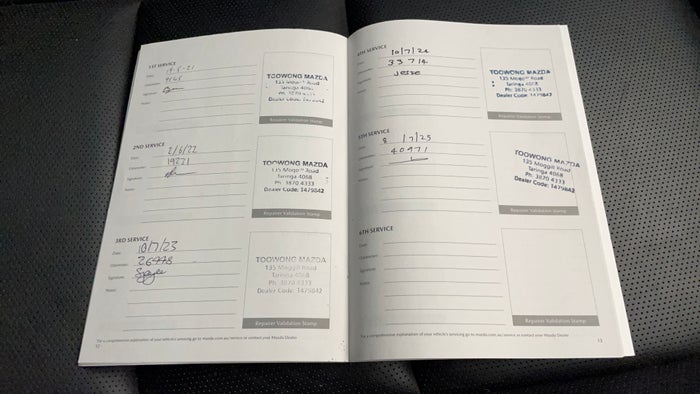 1ST SERVICE
Date:
19-5-21
Odometer:
Signature:
Notes:
TOOWONG MAZDA
Taringa 4068
Repairer Validation Stamp
2ND SERVICE
Date:
2/6/22
Odometer:
19221
Signature:
Notes:
TOOWONG MAZDA
Taringa 4068
Ph: 3870 4333
Dealer Code: 1475842
Repairer Validation Stamp
3RD SERVICE
Date:
10/7/23
Odometer:
Signature:
Notes:
TOOWONG MAZDA
135 Moggill Road
Taringa 4068
Ph: 3870 4333
Dealer Code: 1475842
Repairer Validation Stamp
For a comprehensive explanation of your vehicle's servicing go to mazda.com.au/service or contact your Mazda Dealer
12
4TH SERVICE
Date:
10/7/24
Odometer:
33714
Signature:
Jesse
Notes:
TOOWONG MAZDA
Taringa 4068
Ph: 3870 4333
Dealer Code: 1475842
Repairer Validation Stamp
5TH SERVICE
Date:
8/7/25
Odometer:
40971
Signature:
Notes:
TOOWONG MAZDA
135 Moggill Road
Taringa 4068
Ph: 3870 4333
Dealer Code: 1475842
Repairer Validation Stamp
6TH SERVICE
Date:
Odometer:
Signature:
Notes:
Repairer Validation Stamp
For a comprehensive explanation of your vehicle's servicing go to mazda.com.au/service or contact your Mazda Dealer
13